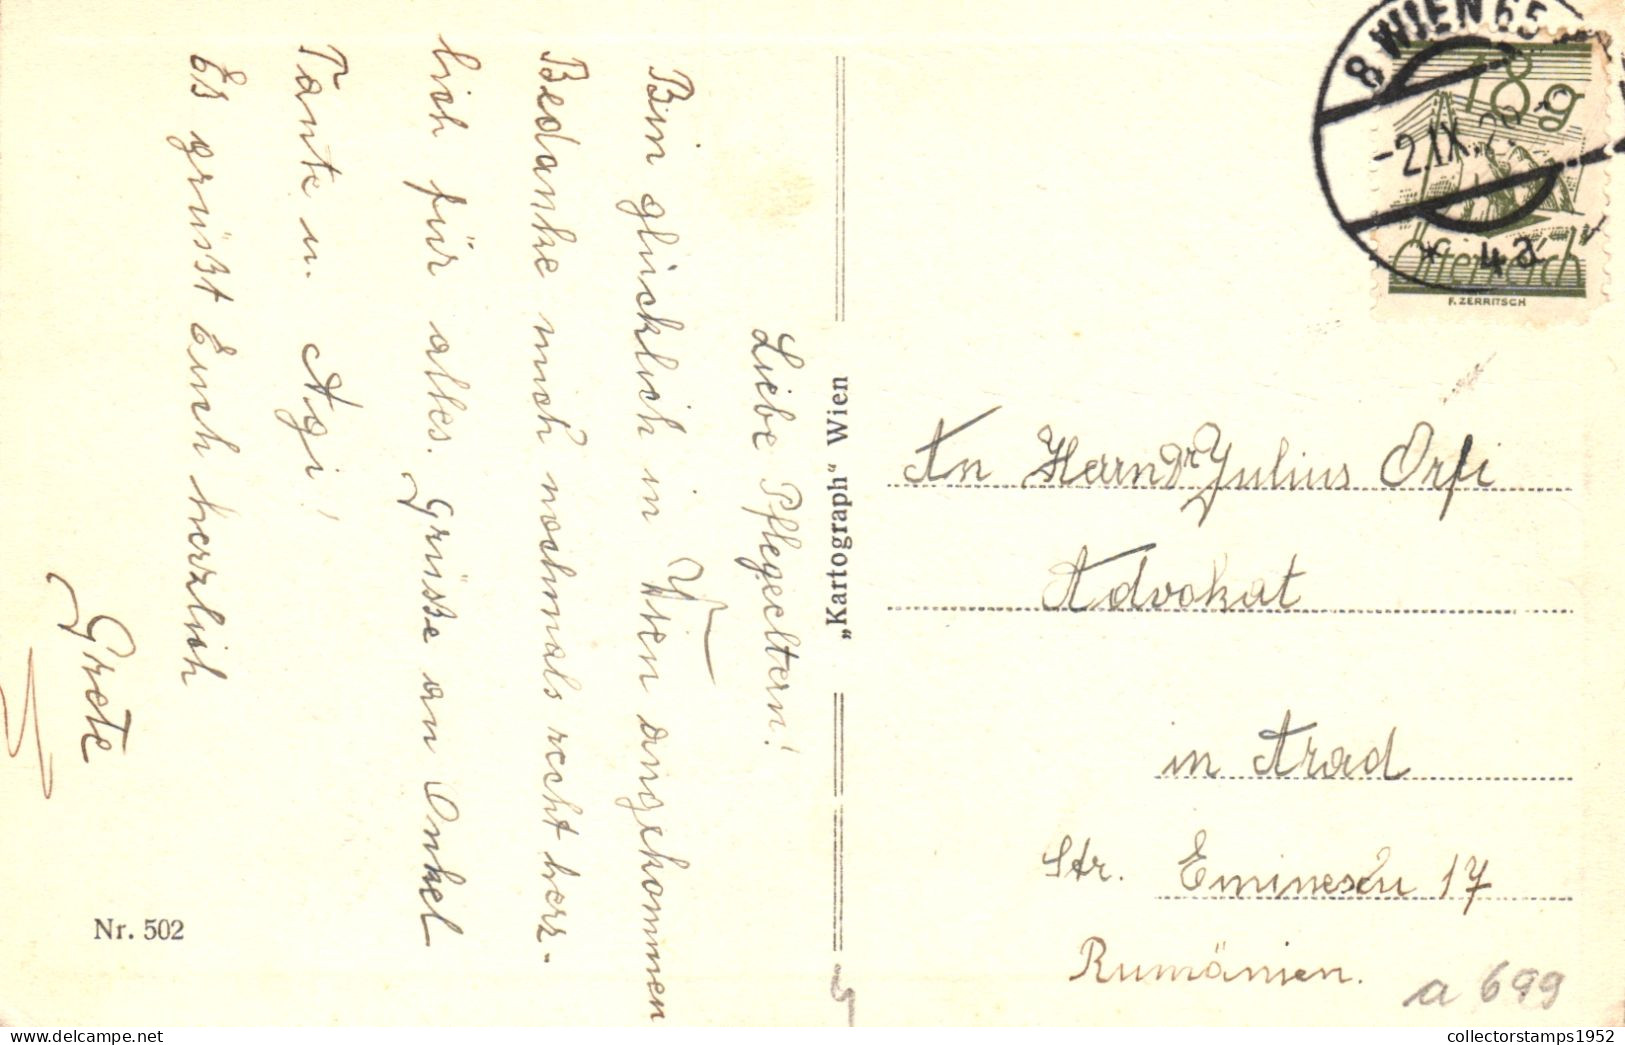 Liebe Pflegeeltern!
Bin glücklich in Wien angekommen
Bedanke mich nochmals recht herz-
lich für alles. Grüsse an Onkel
Tante u. Agi!
Es grüsst Euch herzlich
Grete
Nr. 502
„Kartograph" Wien
8 WIEN 65
-2.IX.
* 4a
18g
Österreich
F. ZERRITSCH
An Herrn Dr Julius Orfi
Advokat
in Arad
Str. Eminescu 17
Rumänien.
a 699
collectorstamps1952